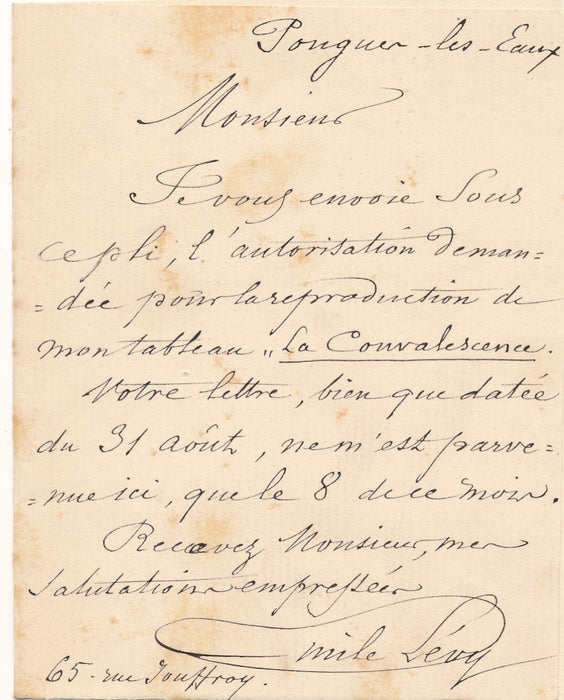 Pougues-les-Eaux
Monsieur
Je vous envoie sous
ce pli, l'autorisation deman=
=dée pour la reproduction de
mon tableau „La Convalescence.
Votre lettre, bien que datée
du 31 août, ne m'est parve=
=nue ici, que le 8 de ce mois.
Recevez Monsieur, mes
salutations empressées
Emile Lévy
65 - rue Jouffroy.